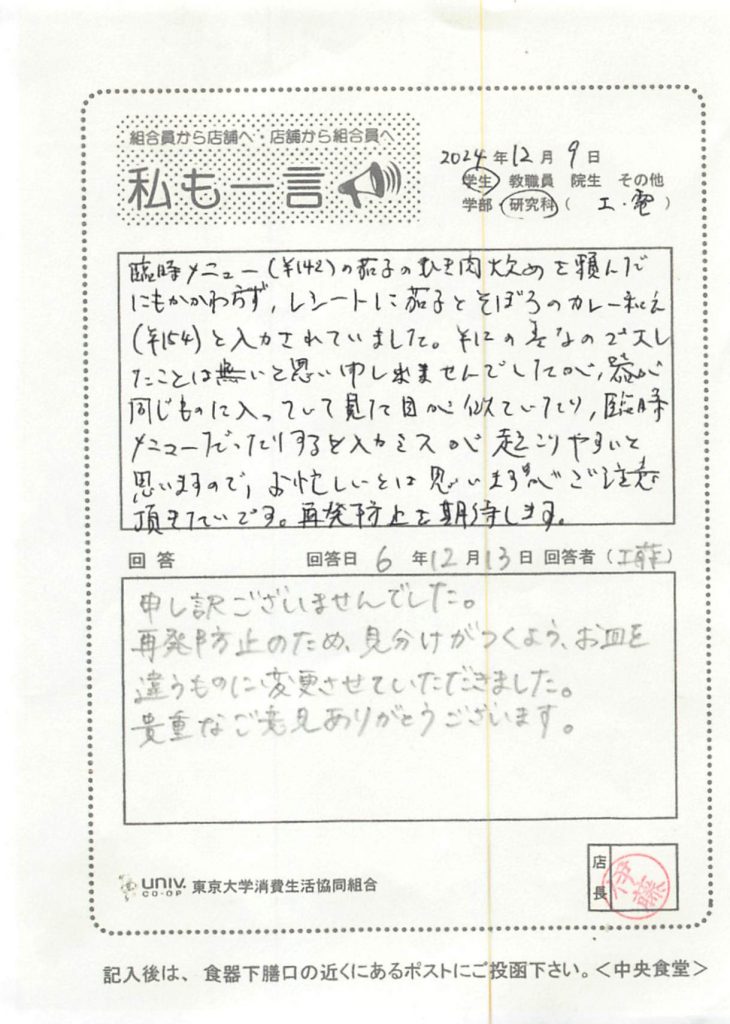 組合員から店舗へ・店舗から組合員へ
私も一言
2024年12月9日
学生 教職員 院生 その他
学部・研究科(工・電)
臨時メニュー(¥142)の茄子のひき肉炒めを頼んだ
にもかかわらず,レシートに茄子とそぼろのカレー和え
(¥154)と入力されていました。¥12の差なので大し
たことは無いと思い申し出ませんでしたが,器が
同じものに入っていて見た目が似ていたり,臨時
メニューだったりすると入力ミスが起こりやすいと
思いますので,お忙しいとは思いますがご注意
頂きたいです。再発防止を期待します。
回答 回答日 6年12月13日 回答者(工藤)
申し訳ございませんでした。
再発防止のため、見分けがつくよう、お皿を
違うものに変更させていただきました。
貴重なご意見ありがとうございます。
UNIV. CO-OP 東京大学消費生活協同組合
店長 伊藤
記入後は、食器下膳口の近くにあるポストにご投函下さい。<中央食堂>